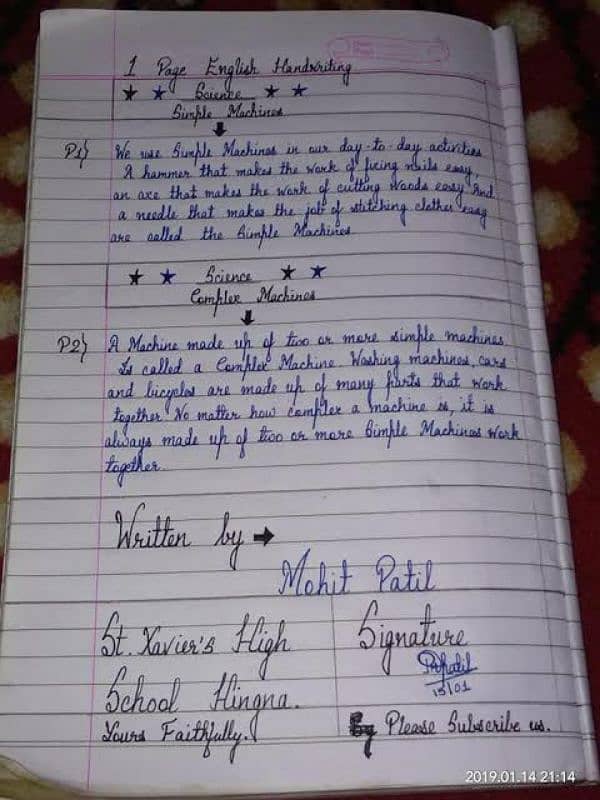 1 Page English Handwriting
★ ★ Science ★ ★
Simple Machines
P1} We use Simple Machines in our day-to-day activities
A hammer that makes the work of fixing nails easy,
an axe that makes the work of cutting woods easy And
a needle that makes the job of stitching clothes easy
are called the Simple Machines
★ ★ Science ★ ★
Complex Machines
P2} A Machine made up of two or more simple machines
Is called a Complex Machine. Washing machines, cars
and bicycles are made up of many parts that work
together No matter how complex a machine is, it is
always made up of two or more Simple Machines work
together
Written by →
Mohit Patil
St. Xavier's High
School Hingna.
Yours Faithfully.
Signature
15/01
Please Subscribe us.
2019.01.14 21:14